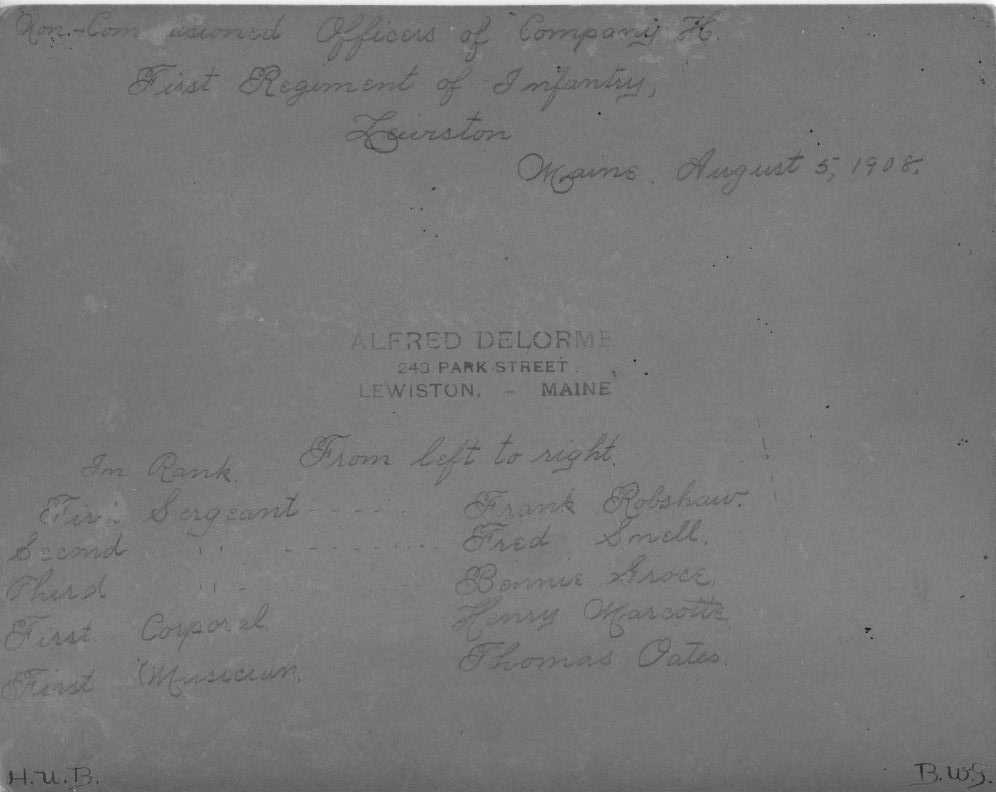 Non-Commissioned Officers of Company H.
First Regiment of Infantry,
Lewiston
Maine. August 5, 1908.
ALFRED DELORME
243 PARK STREET.
LEWISTON, - MAINE
From left to right.
In Rank.
First Sergeant - - - - Frank Robshaw.
Second " - - - - - - - - Fred Snell.
Third " - - Bennie Groce,
First Corporal Henry Marcotte
First Musician. Thomas Oates.
H.U.B. B.W.G.